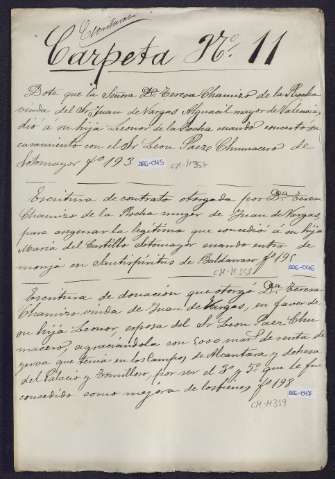 Escrituras
Carpeta Nº 11
Dote que la Señora Dª Teresa Chamizo de la Rocha
viuda del Sr Juan de Vargas Alguacil mayor de Valencia,
dió a su hija Leonor de la Rocha cuando concertó su
casamiento con el Sr Leon Paez Chumacero de
Sotomayor fº 193
Escritura de contrato otorgada por Dª Teresa
Chamizo de la Rocha muger de Juan de Vargas,
para engenar la legitima que concedió a su hija
María del Castillo Sotomayor cuando entró de
monja en Sancti Spiritus de Badajoz fº 195
Escritura de donación que otorgó Dª Teresa
Chamizo viuda de Juan de Vargas, en favor de
su hija Leonor, esposa del Sr Leon Paez Chu
macero, agraciándola con 5000 mar. de renta de
yerva que tenia en los Campos de Alcantara, y dehesa
del Palacio y Tomilloso, por ser el 3º y 5º que le fue
concedido como mejora de los bienes fº 198
CH-H359